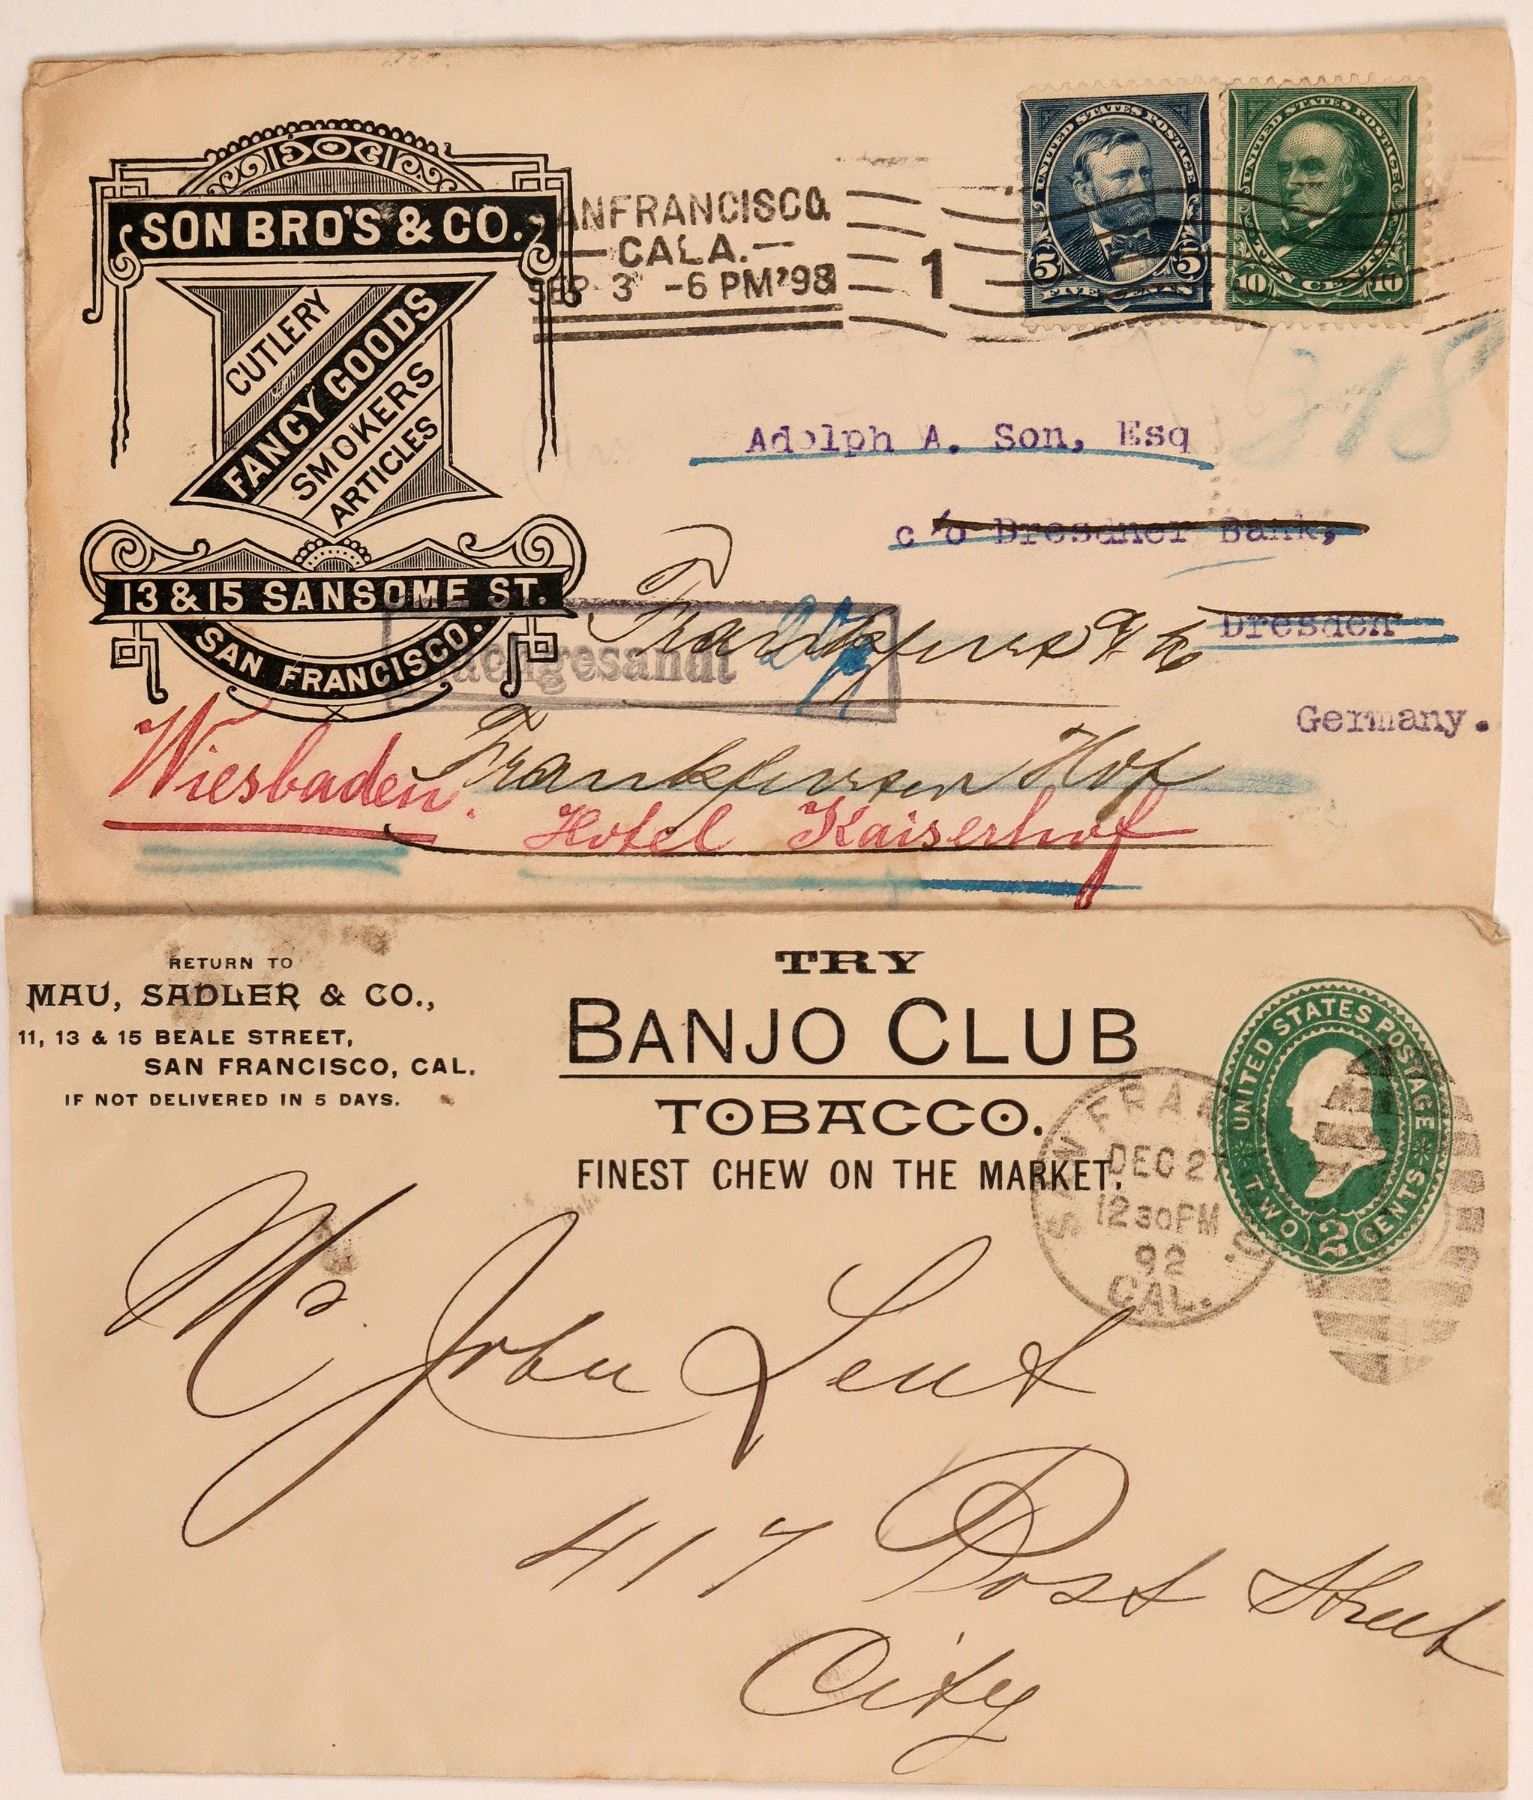 SON BRO'S & CO.
CUTLERY
FANCY GOODS
SMOKERS
ARTICLES
13 & 15 SANSOME ST.
SAN FRANCISCO.
SANFRANCISCO
— CALA. —
SEP 3 -6 PM '98
1
UNITED STATES POSTAGE
5 5
FIVE CENTS
UNITED STATES POSTAGE
10 10
TEN CENTS
318
Adolph A. Son, Esq
c/o Dresdner Bank,
Dresden
Germany.
Frankfurt a/M
Nachgesandt
Frankfurter Hof
Wiesbaden.
Hotel Kaiserhof
RETURN TO
MAU, SADLER & CO.,
11, 13 & 15 BEALE STREET,
SAN FRANCISCO, CAL.
IF NOT DELIVERED IN 5 DAYS.
TRY
BANJO CLUB
TOBACCO.
FINEST CHEW ON THE MARKET.
SAN FRANCISCO
DEC 27
12 30 PM
92
CAL.
UNITED STATES POSTAGE
TWO 2 CENTS
Mr. John Lent
417 Post Street
City